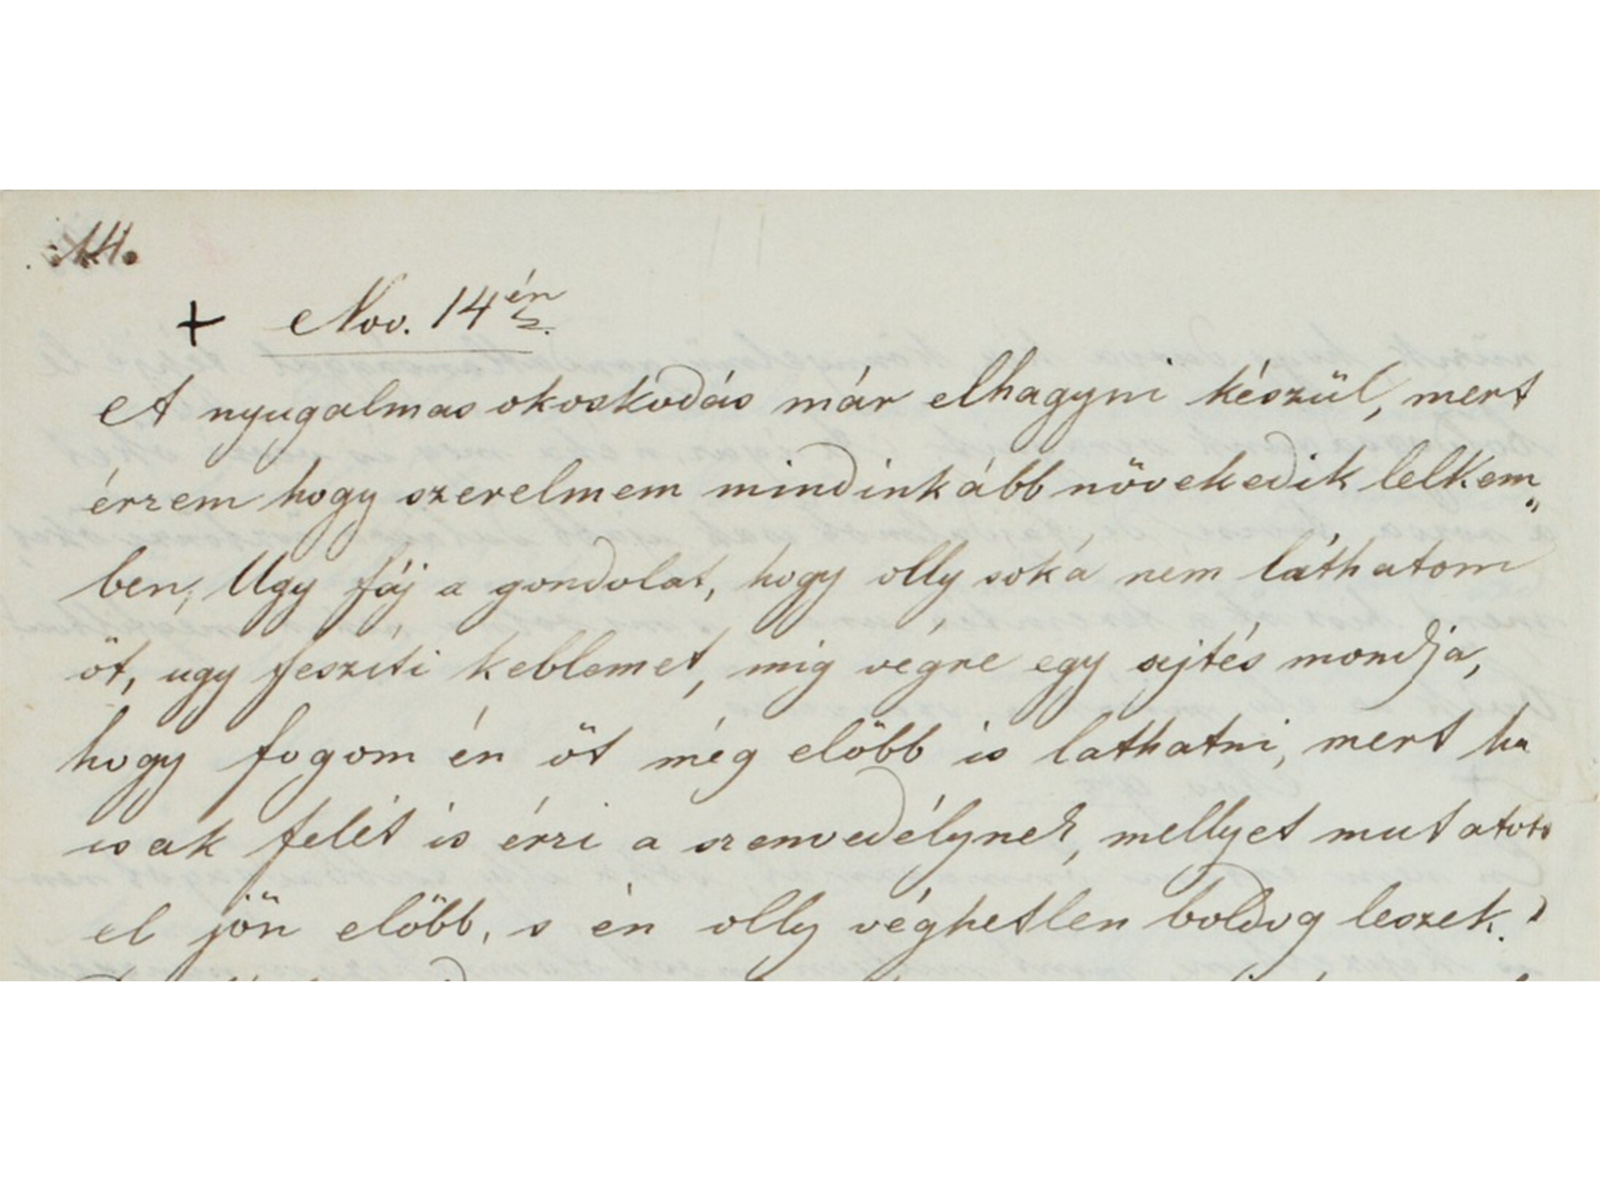 14.
+ Nov. 14én
A nyugalmas okoskodás már elhagyni készül, mert
érzem hogy szerelmem mindinkább növekedik lelkem„
ben, Ugy fáj a gondolat, hogy olly soká nem láthatom
öt, ugy feszíti keblemet, mig végre egy sejtés mondja,
hogy fogom én öt még elöbb is lathatni, mert ha
csak felét is érzi a szenvedélynek, mellyet mutatott
el jön elöbb, s én olly véghetlen boldog leszek.